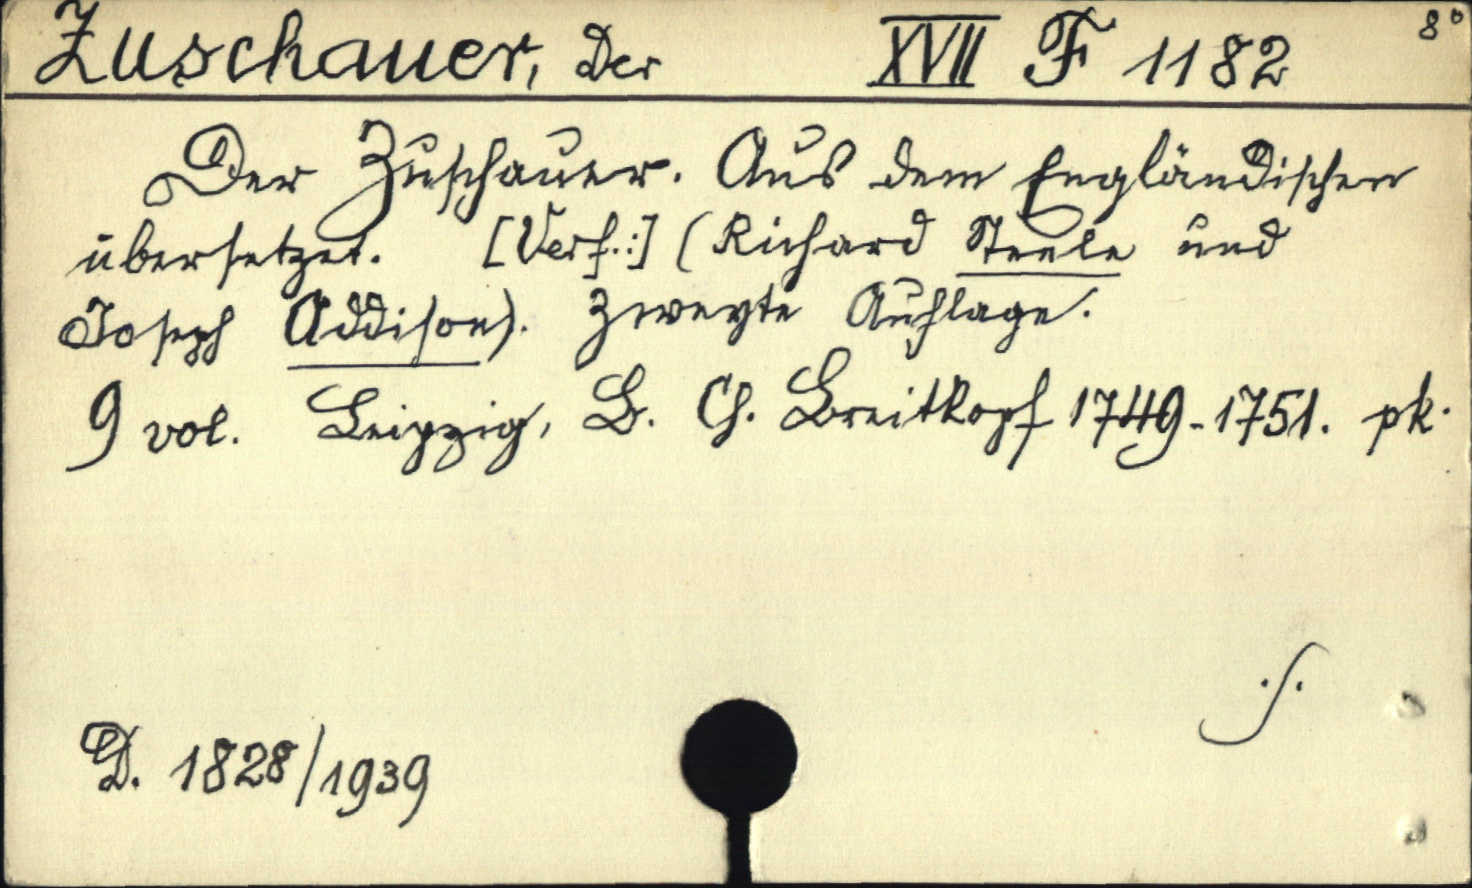 Zuschauer, Der XVII F 1182 8°
Der Zuschauer. Aus dem Engländischen
übersetzet. [Verf.:] (Richard Steele und
Joseph Addison). Zweyte Auflage.
9 vol. Leipzig, B. Ch. Breitkopf 1749-1751. pk.
D. 1828/1939